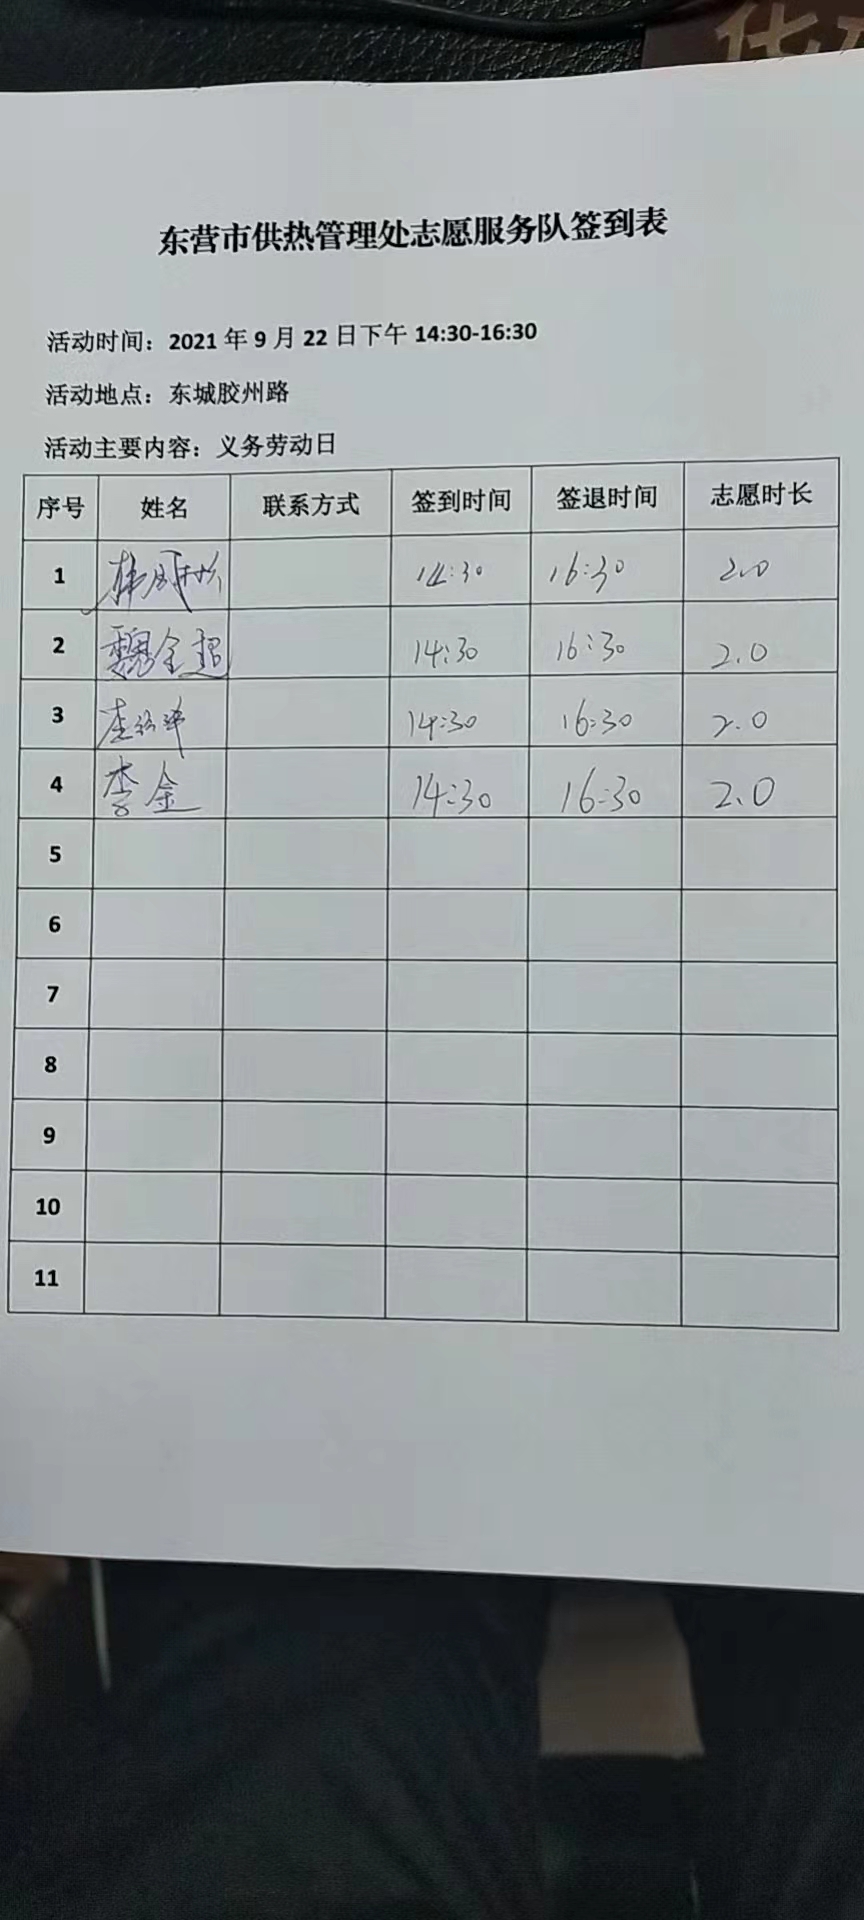 东营市供热管理处志愿服务队签到表
活动时间：2021 年 9 月 22 日下午 14:30-16:30
活动地点：东城胶州路
活动主要内容：义务劳动日
序号 姓名 联系方式 签到时间 签退时间 志愿时长
1 14:30 16:30 2.0
2 魏全超 14:30 16:30 2.0
3 李 14:30 16:30 2.0
4 李金 14:30 16:30 2.0
5
6
7
8
9
10
11